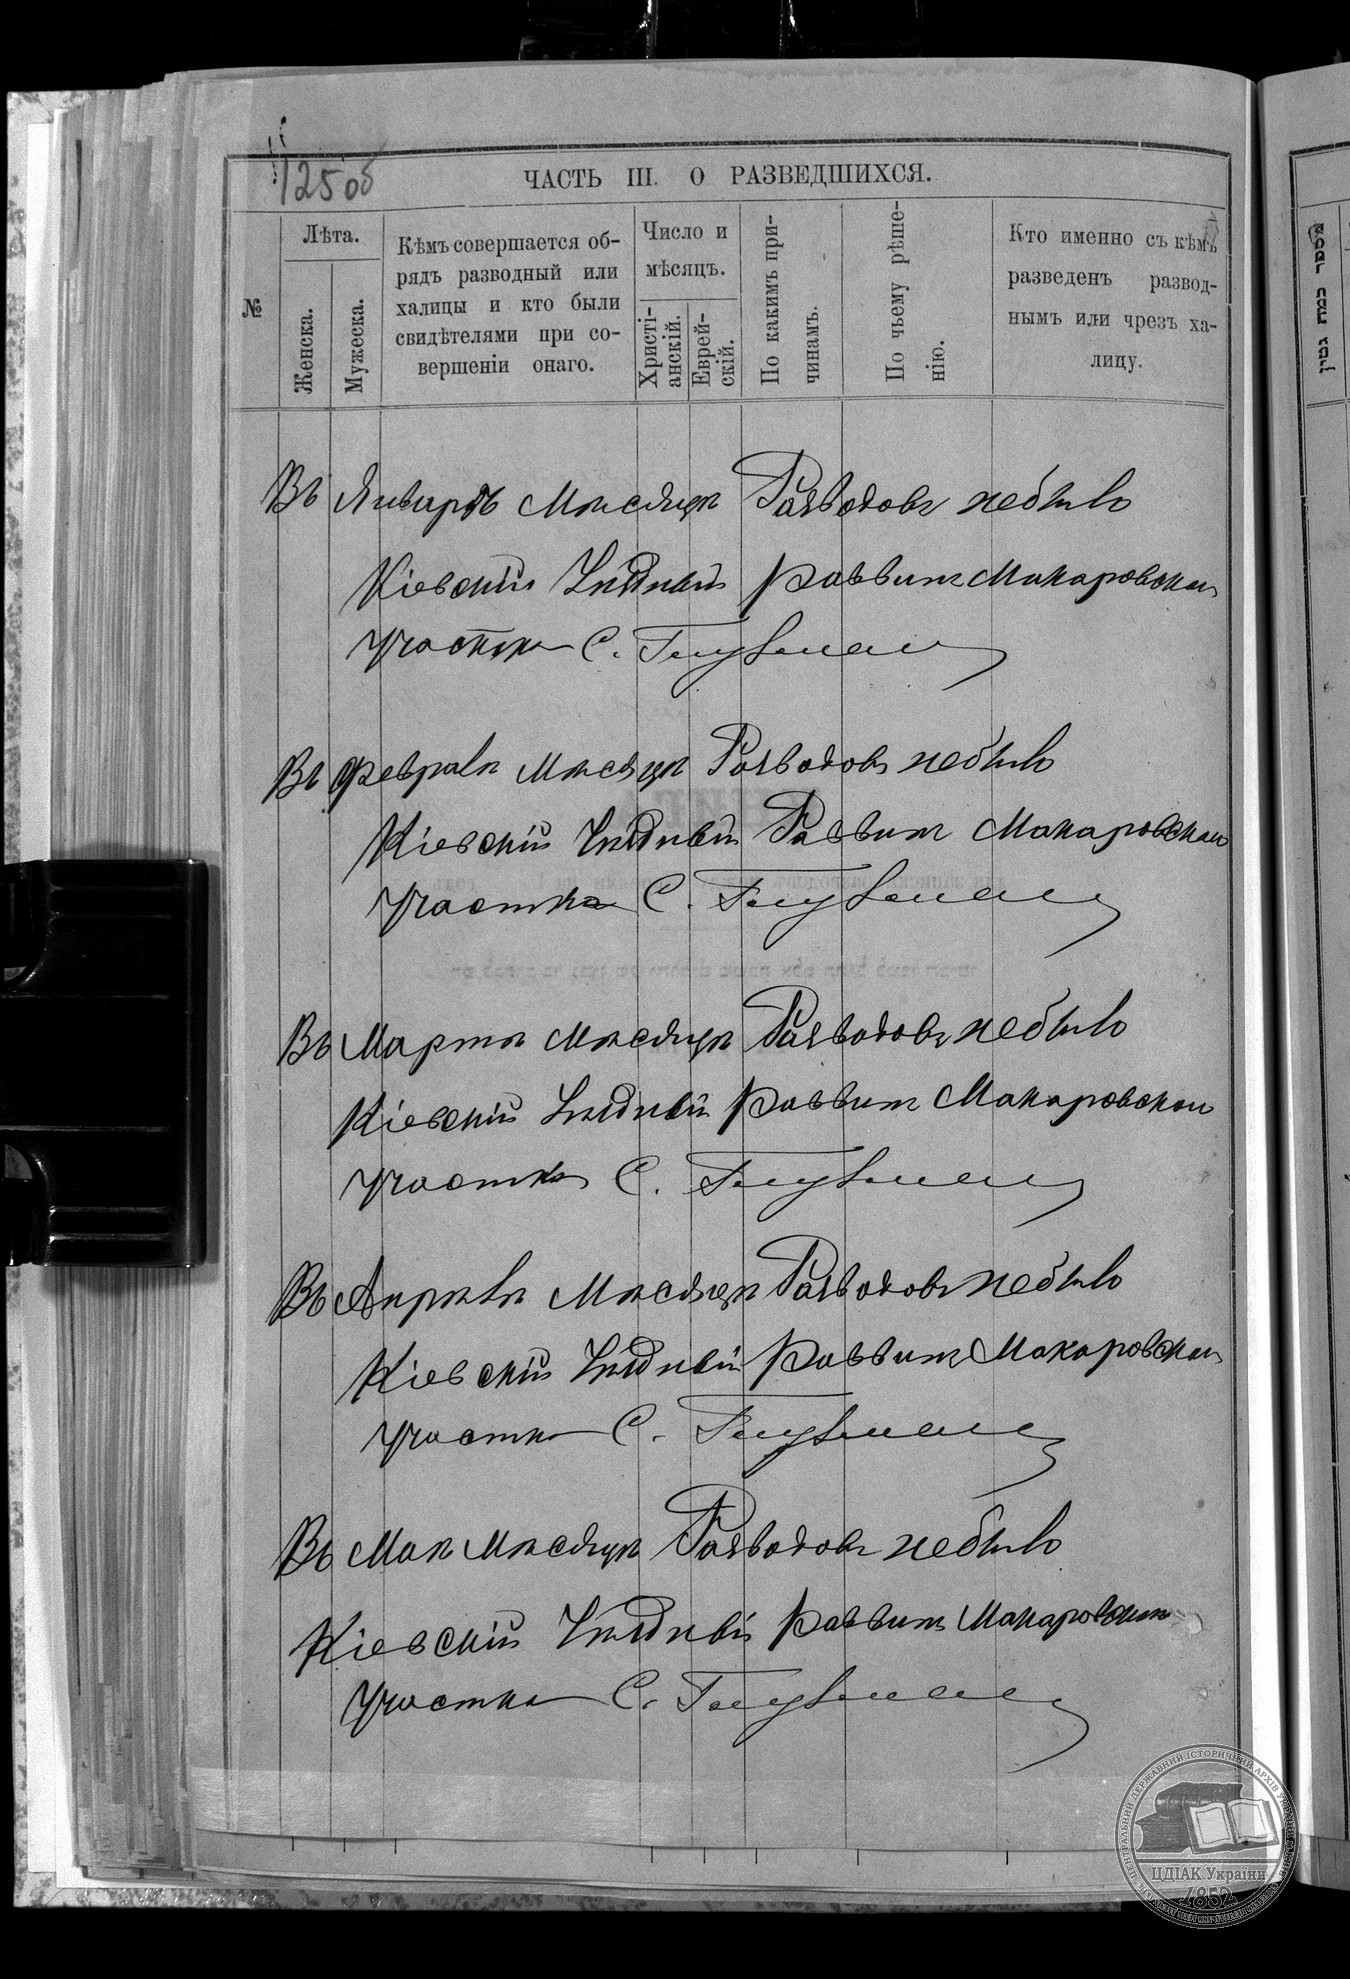 125 об
ЧАСТЬ III. О РАЗВЕДШИХСЯ.
№
Лѣта.
Женска.
Мужеска.
Кѣмъ совершается об-
рядъ разводный или
халицы и кто были
свидѣтелями при со-
вершеніи онаго.
Число и
мѣсяцъ.
Христі-
анскій.
Еврей-
скій.
По какимъ при-
чинамъ.
По чьему рѣше-
нію.
Кто именно съ кѣмъ
разведенъ развод-
нымъ или чрезъ ха-
лицу.
מספר המה גטין
Въ Январѣ Мѣсяцѣ Разводовъ небыло
Кіевскій Уѣздный Раввинъ Макаровскаго
Участка С.
Въ Февралѣ Мѣсяцѣ Разводовъ небыло
Кіевскій Уѣздный Раввинъ Макаровскаго
Участка С.
Въ Мартѣ Мѣсяцѣ Разводовъ небыло
Кіевскій Уѣздный Раввинъ Макаровскаго
Участка С.
Въ Апрѣлѣ Мѣсяцѣ Разводовъ небыло
Кіевскій Уѣздный Раввинъ Макаровскаго
Участка С.
Въ Маѣ Мѣсяцѣ Разводовъ небыло
Кіевскій Уѣздный Раввинъ Макаровскаго
Участка С.
ЦЕНТРАЛЬНИЙ ДЕРЖАВНИЙ ІСТОРИЧНИЙ АРХІВ УКРАЇНИ
ЦДІАК України
1852